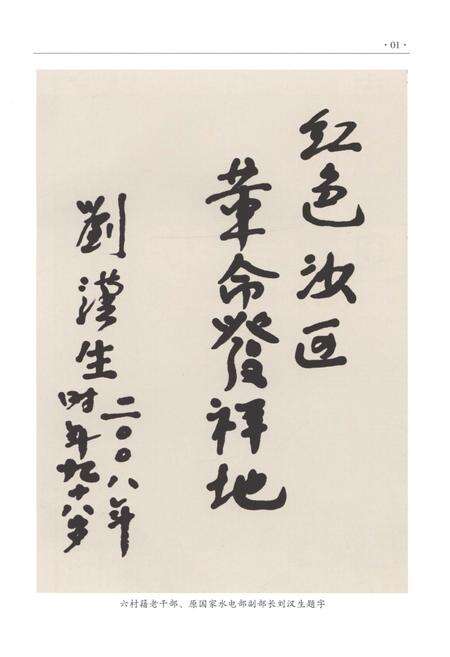 ·01·
红色沙区
革命發祥地
劉漢生
二〇〇八年
时年九十八岁
六村籍老干部、原国家水电部副部长刘汉生题字